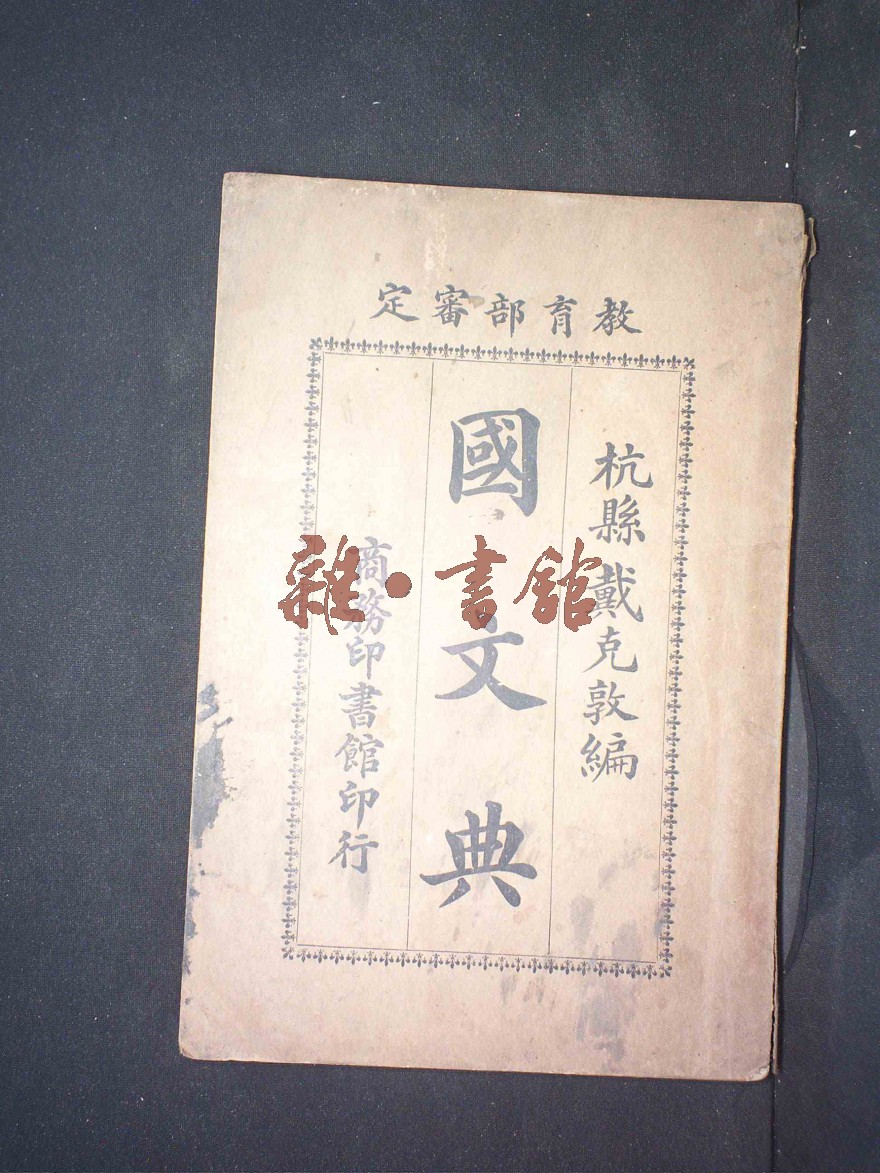 教育部審定
杭縣戴克敦編
國文典
商務印書館印行
雜·書館